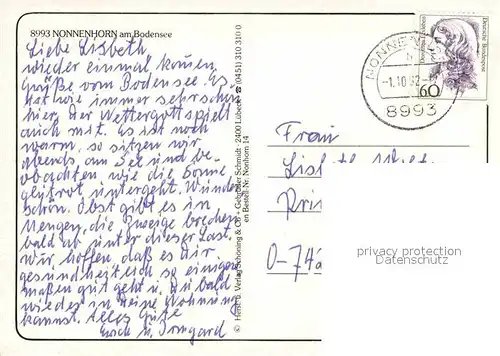 8993 NONNENHORN am Bodensee
Liebe Lisbeth
wieder einmal kommen
Grüße vom Bodensee. Es
ist wie immer sehr schön
hier. Der Wettergott spielt
auch mit. Es ist noch
warm, so sitzen wir
abends am See und be-
obachten, wie die Sonne
glutrot untergeht. Wunder
schön. Obst gibt es in
Mengen, die Zweige brechen
bald ab unter dieser Last.
Wir hoffen, daß es dir
gesundheitlich so einiger
maßen gut geht u. Du bald
wieder in Deine Wohnung
kannst. Alles Gute
Erich u. Irmgard
© Herst. u. Verlag Schöning & Co + Gebrüder Schmidt · 2400 Lübeck · ☎ (0451) 310 310 0
Bestell-Nr. Nonhorn 14
-1.10.92
8993
Deutsche Bundespost
60
Frau
Lis
Kri
D-74
privacy protection
Datenschutz